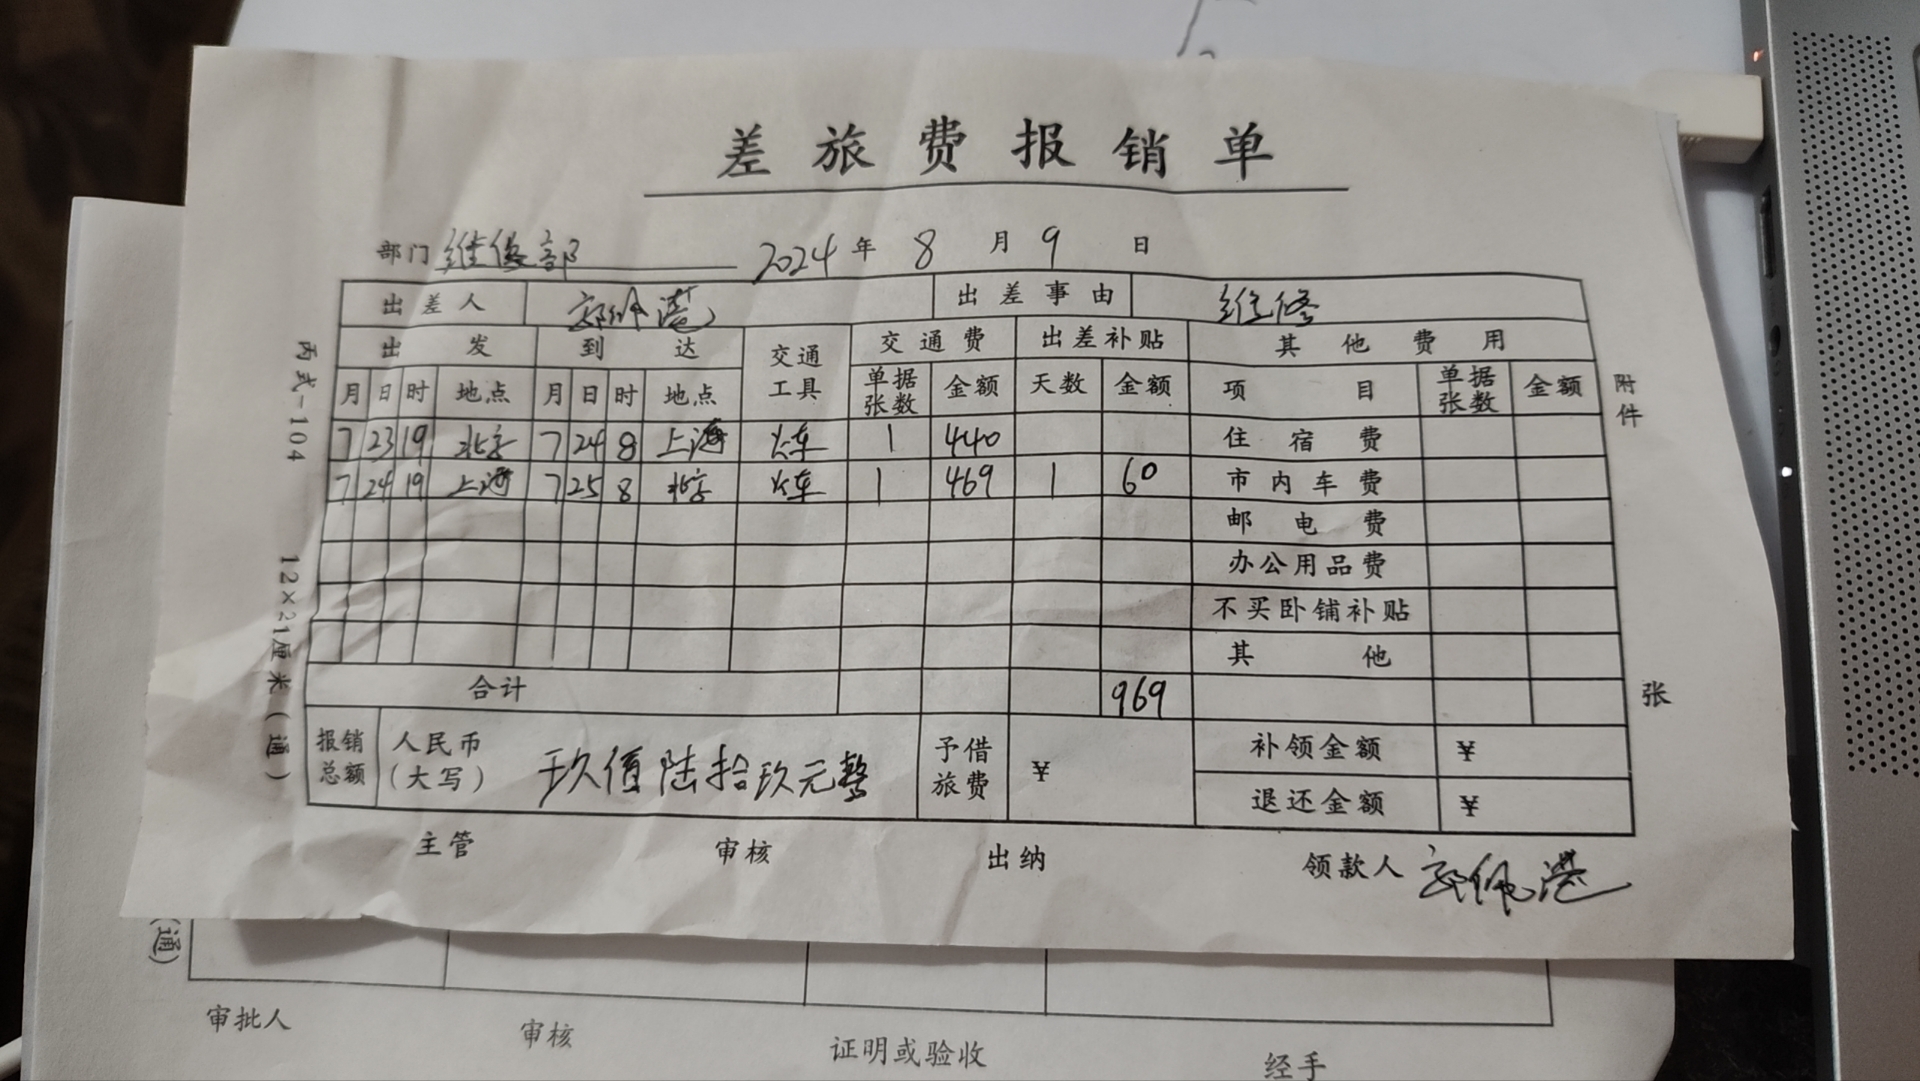 差旅费报销单
部门 维修部 2024 年 8 月 9 日
出差人 郭佩港 出差事由 维修
出发 到达 交通工具 交通费 出差补贴 其他费用
月 日 时 地点 月 日 时 地点 单据张数 金额 天数 金额 项目 单据张数 金额
7 23 19 北京 7 24 8 上海 火车 1 440 住宿费
7 24 19 上海 7 25 8 北京 火车 1 469 1 60 市内车费
邮电费
办公用品费
不买卧铺补贴
其他
合计 969
报销总额 人民币(大写) 玖佰陆拾玖元整 予借旅费 ¥ 补领金额 ¥
退还金额 ¥
主管 审核 出纳 领款人 郭佩港
丙式-104 12×21厘米(通)
附件 张
(通)
审批人 审核 证明或验收 经手